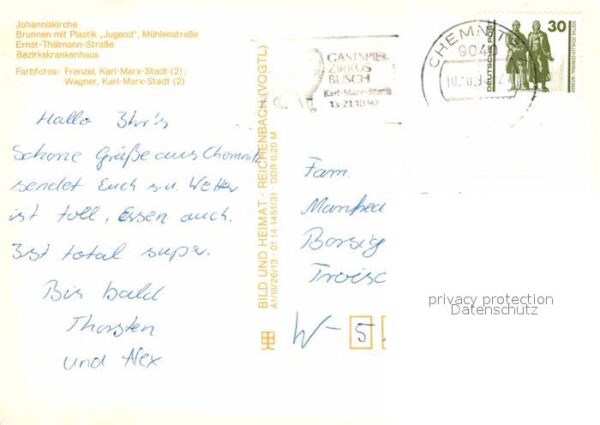 Johanniskirche
Brunnen mit Plastik „Jugend", Mühlenstraße
Ernst-Thälmann-Straße
Bezirkskrankenhaus
Farbfotos: Frenzel, Karl-Marx-Stadt (2);
Wagner, Karl-Marx-Stadt (2)
Hallo Ihr's
Schöne Grüße aus Chemnitz
sendet Euch Wetter
ist toll, Essen auch.
Ist total super.
Bis bald
Thorsten
und Alex
BILD UND HEIMAT · REICHENBACH (VOGTL)
A1/III/26/13 · 01 14 1451/31 · DDR 0,20 M
GASTSPIEL
ZIRKUS
BUSCH
Karl-Marx-Stadt
13-21.10.90
CHEMNITZ
DEUTSCHE POST
30
Fam.
Manfred
Borsig
Troisd
W-5
privacy protection
Datenschutz